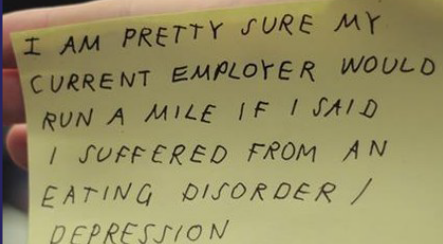 I AM PRETTY SURE MY
CURRENT EMPLOYER WOULD
RUN A MILE IF I SAID
I SUFFERED FROM AN
EATING DISORDER /
DEPRESSION